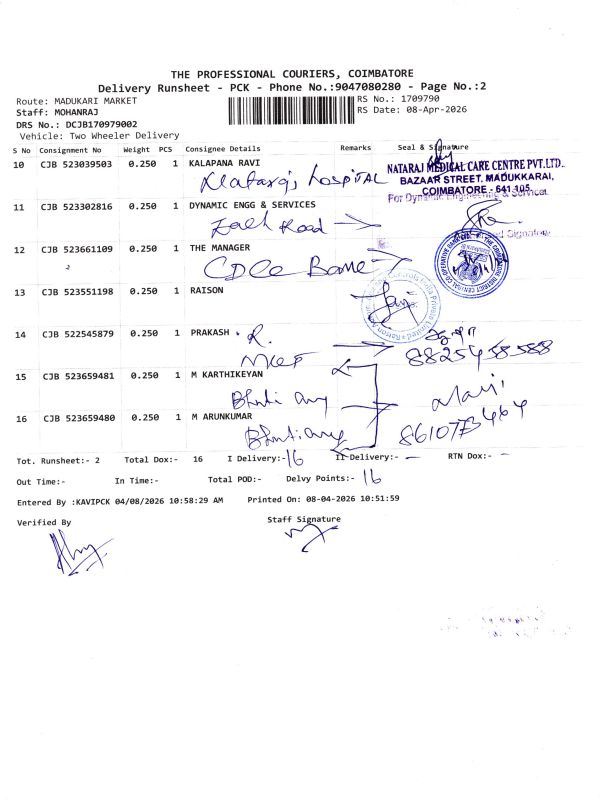 THE PROFESSIONAL COURIERS, COIMBATORE
Delivery Runsheet - PCK - Phone No.:9047080280 - Page No.:2
Route: MADUKARI MARKET
RS No.: 1709790
Staff: MOHANRAJ
RS Date: 08-Apr-2026
DRS No.: DCJB170979002
Vehicle: Two Wheeler Delivery
S No Consignment No Weight PCS Consignee Details Remarks Seal & Signature
10 CJB 523039503 0.250 1 KALAPANA RAVI
Nataraj hospital
NATARAJ MEDICAL CARE CENTRE PVT.LTD.
BAZAAR STREET, MADUKKARAI,
COIMBATORE - 641 105.
11 CJB 523302816 0.250 1 DYNAMIC ENGG & SERVICES
For Dynamic Engineering & Services
Road
12 CJB 523661109 0.250 1 THE MANAGER
2
13 CJB 523551198 0.250 1 RAISON
14 CJB 522545879 0.250 1 PRAKASH . R.
8825458588
15 CJB 523659481 0.250 1 M KARTHIKEYAN
16 CJB 523659480 0.250 1 M ARUNKUMAR
Tot. Runsheet:- 2 Total Dox:- 16 I Delivery:- 16 II Delivery:- - RTN Dox:- -
Out Time:- In Time:- Total POD:- Delvy Points:- 16
Entered By :KAVIPCK 04/08/2026 10:58:29 AM Printed On: 08-04-2026 10:51:59
Verified By Staff Signature